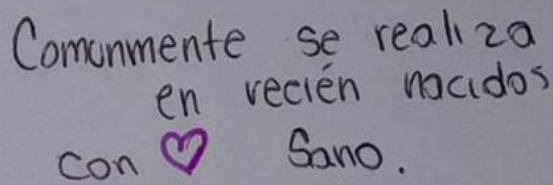 Comunmente se realiza
en recién nacidos
con 💜 Sano.